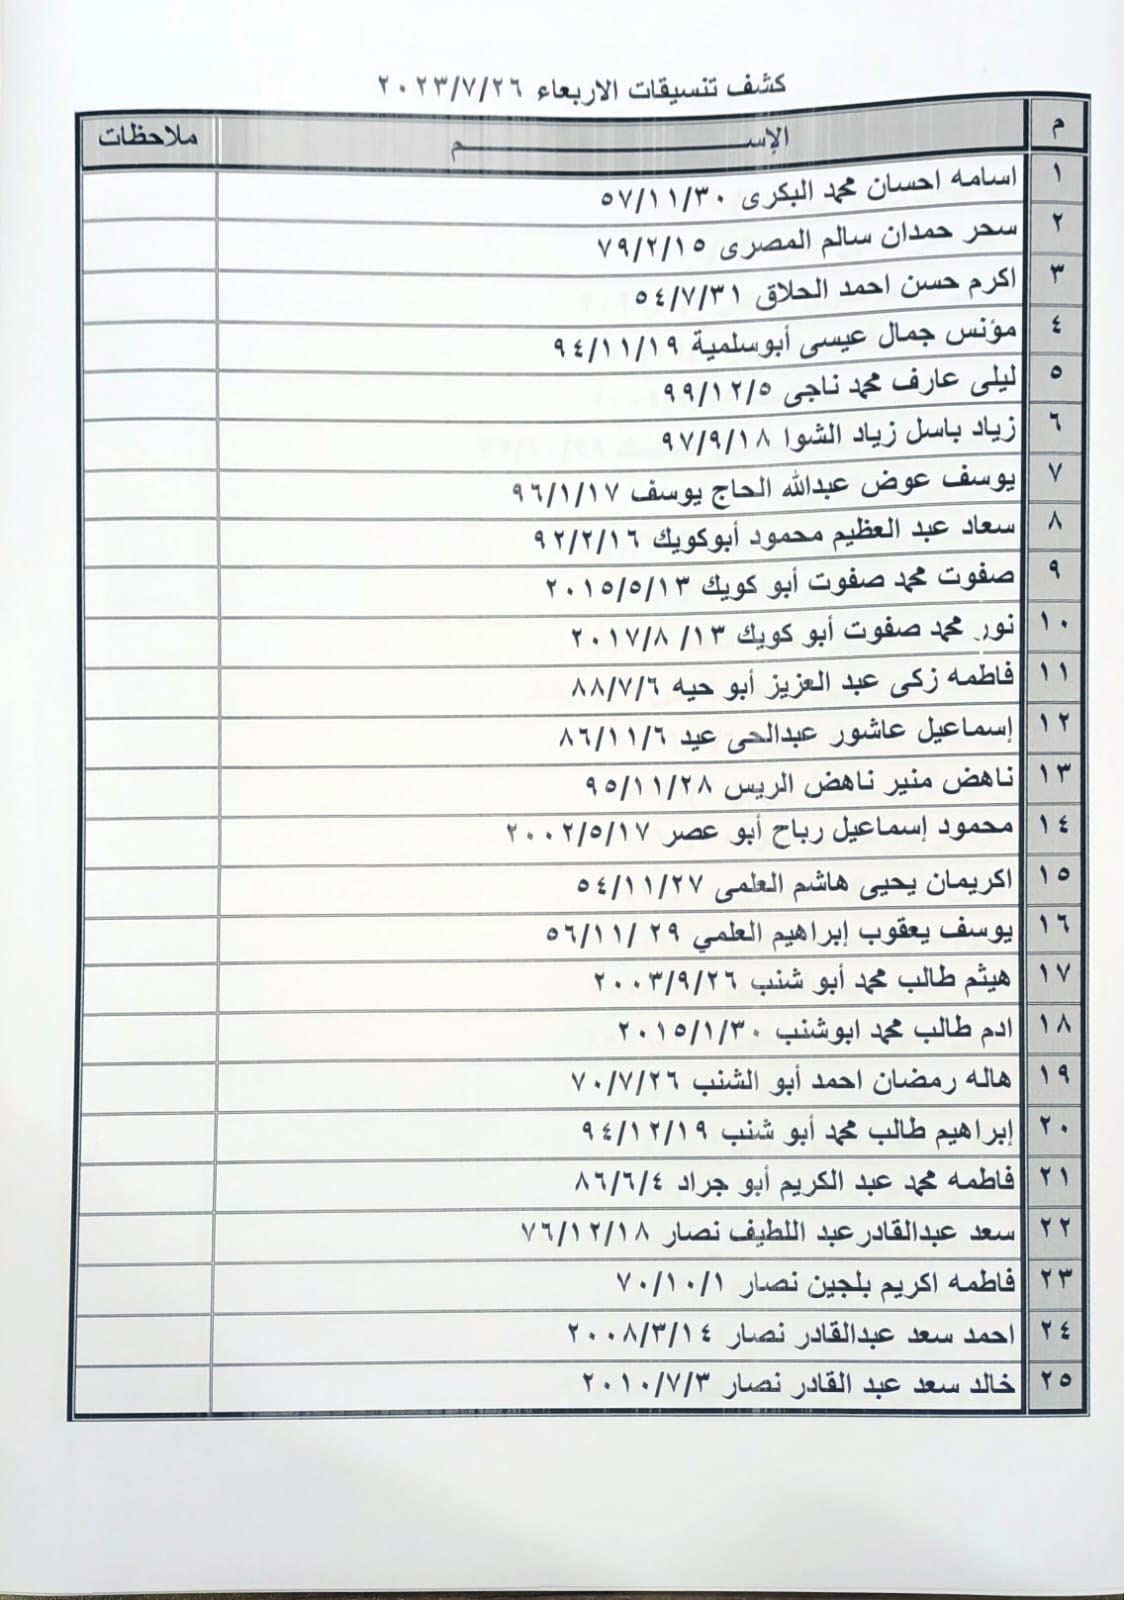 كشف تنسيقات الاربعاء ٢٠٢٣/٧/٢٦
م الإســـــــــــم ملاحظات
١ اسامه احسان محمد البكرى ٥٧/١١/٣٠
٢ سحر حمدان سالم المصرى ٧٩/٢/١٥
٣ اكرم حسن احمد الحلاق ٥٤/٧/٣١
٤ مؤنس جمال عيسى أبوسلمية ٩٤/١١/١٩
٥ ليلى عارف محمد ناجى ٩٩/١٢/٥
٦ زياد باسل زياد الشوا ٩٧/٩/١٨
٧ يوسف عوض عبدالله الحاج يوسف ٩٦/١/١٧
٨ سعاد عبد العظيم محمود أبوكويك ٩٢/٢/١٦
٩ صفوت محمد صفوت أبو كويك ٢٠١٥/٥/١٣
١٠ نور محمد صفوت أبو كويك ١٣/ ٢٠١٧/٨
١١ فاطمه زكى عبد العزيز أبو حيه ٨٨/٧/٦
١٢ إسماعيل عاشور عبدالحى عيد ٨٦/١١/٦
١٣ ناهض منير ناهض الريس ٩٥/١١/٢٨
١٤ محمود إسماعيل رباح أبو عصر ٢٠٠٢/٥/١٧
١٥ اكريمان يحيى هاشم العلمى ٥٤/١١/٢٧
١٦ يوسف يعقوب إبراهيم العلمي ٢٩ /٥٦/١١
١٧ هيثم طالب محمد أبو شنب ٢٠٠٣/٩/٢٦
١٨ ادم طالب محمد ابوشنب ٢٠١٥/١/٣٠
١٩ هاله رمضان احمد أبو الشنب ٧٠/٧/٢٦
٢٠ إبراهيم طالب محمد أبو شنب ٩٤/١٢/١٩
٢١ فاطمه محمد عبد الكريم أبو جراد ٨٦/٦/٤
٢٢ سعد عبدالقادر عبد اللطيف نصار ٧٦/١٢/١٨
٢٣ فاطمه اكريم بلجين نصار ٧٠/١٠/١
٢٤ احمد سعد عبدالقادر نصار ٢٠٠٨/٣/١٤
٢٥ خالد سعد عبد القادر نصار ٢٠١٠/٧/٣